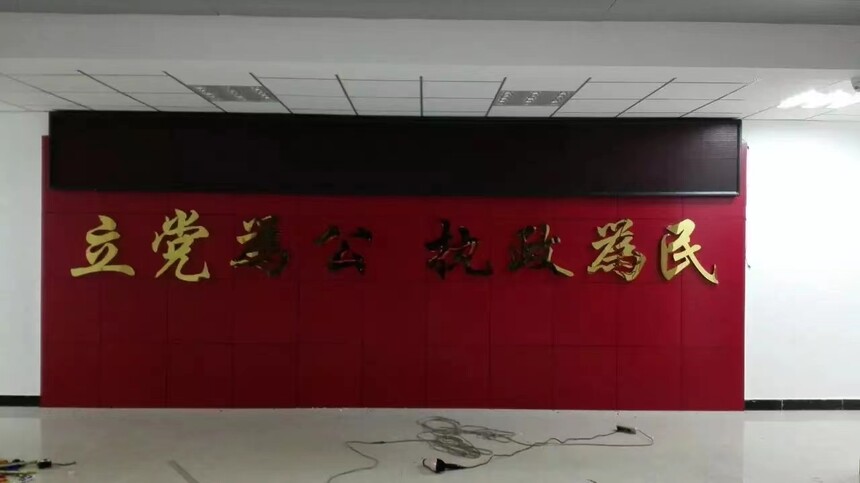 立党為公 执政為民